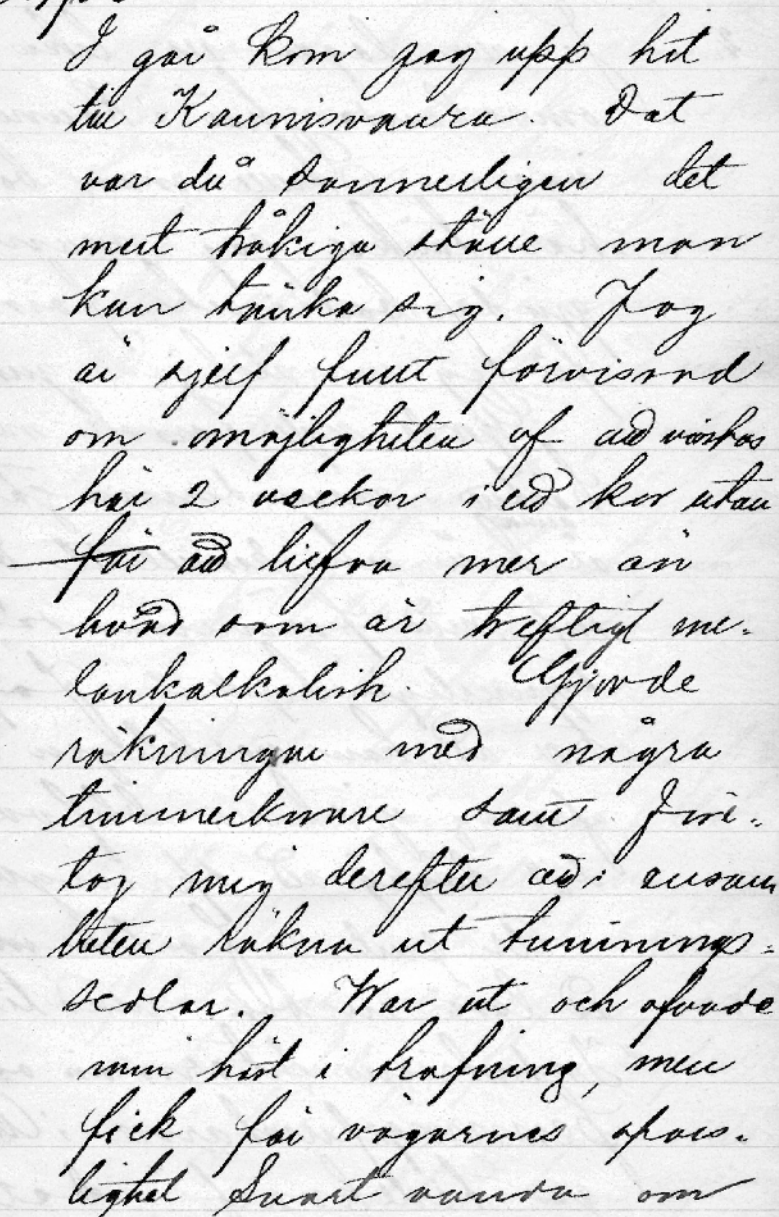 I går kom jag upp hit
till Kaunisvaara. Det
var då sannerligen det
mest tråkiga ställe man
kan tänka sig. Jag
är sjelf fullt förvissad
om omöjligheten af att vistas
här 2 veckor i ett kör utan
för att blifva mer än
hvad som är trefligt me-
lankolkolisk. Gjorde
räkningar med några
timmerkörare samt före-
tog mig derefter att i ensam
heten räkna ut tumnings-
sedlar. War ut och öfvade
min häst i trafning, men
fick för vägarnes
lighet snart vända om